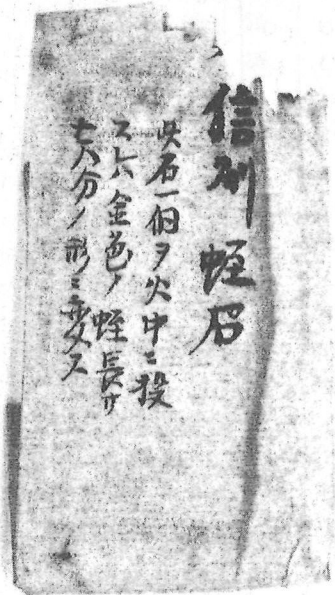 信州 蛭石
此石一個ヲ火中ニ投
スレハ金色ノ蛭長サ
七八分ノ形ニ変ス